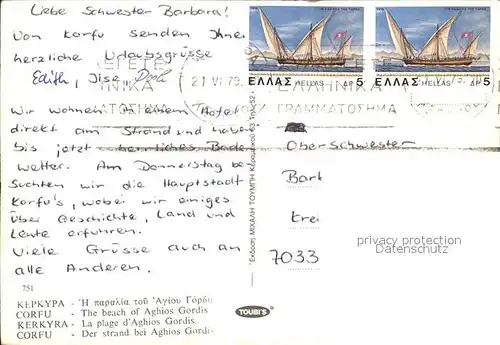 Liebe Schwester Barbara!
Von Korfu senden Ihnen
herzliche Urlaubsgrüsse
Edith, Ilse
Wir wohnen in einem Hotel
direkt am Strand und haben
bis jetzt herrliches Bade
wetter. Am Donnerstag be
suchten wir die Hauptstadt
Korfu's, wobei wir einiges
über Geschichte, Land und
Leute erfuhren.
Viele Grüsse auch an
alle Anderen.
751
ΚΕΡΚΥΡΑ - Ἡ παραλία τοῦ Ἁγίου Γόρδη
CORFU - The beach of Aghios Gordis
KERKYRA - La plage d'Aghios Gordis
CORFU - Der strand bei Aghios Gordi-
TOUBI'S
ΕΛΛΑΣ HELLAS ΔΡ 5
ΕΛΛΑΣ HELLAS ΔΡ 5
21 VI 79
ΗΝΙΚΑ
ΓΡΑΜΜΑΤΟΣΗΜΑ
Oberschwester
Bark
Krei
7033
privacy protection
Datenschutz